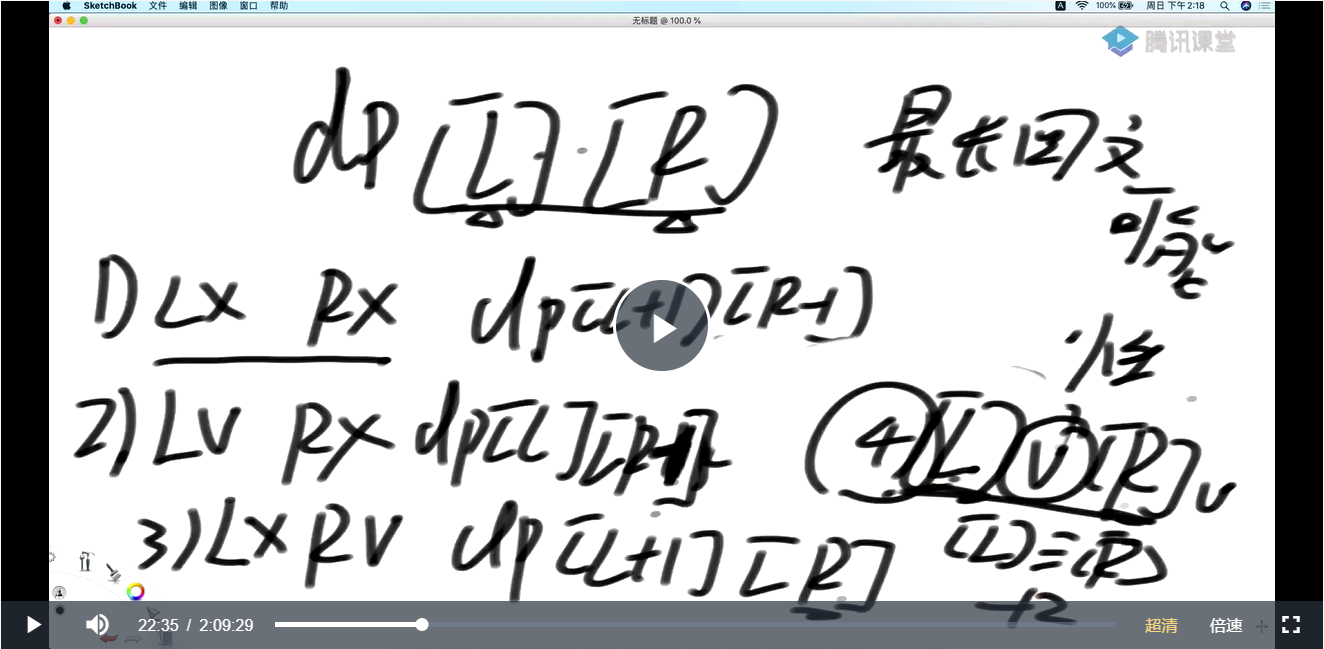 SketchBook 文件 编辑 图像 窗口 帮助 A 100% 周日 下午2:18
无标题 @ 100.0 %
腾讯课堂
dp [L] [R] 最长回文
可能
性
1) LX RX dp[L+1][R-1]
2) LV RX dp[L][R-1]
4) [L] V [R] V
3) LX RV dp[L+1][R]
[L]=[R]
+2
22:35 / 2:09:29 超清 倍速